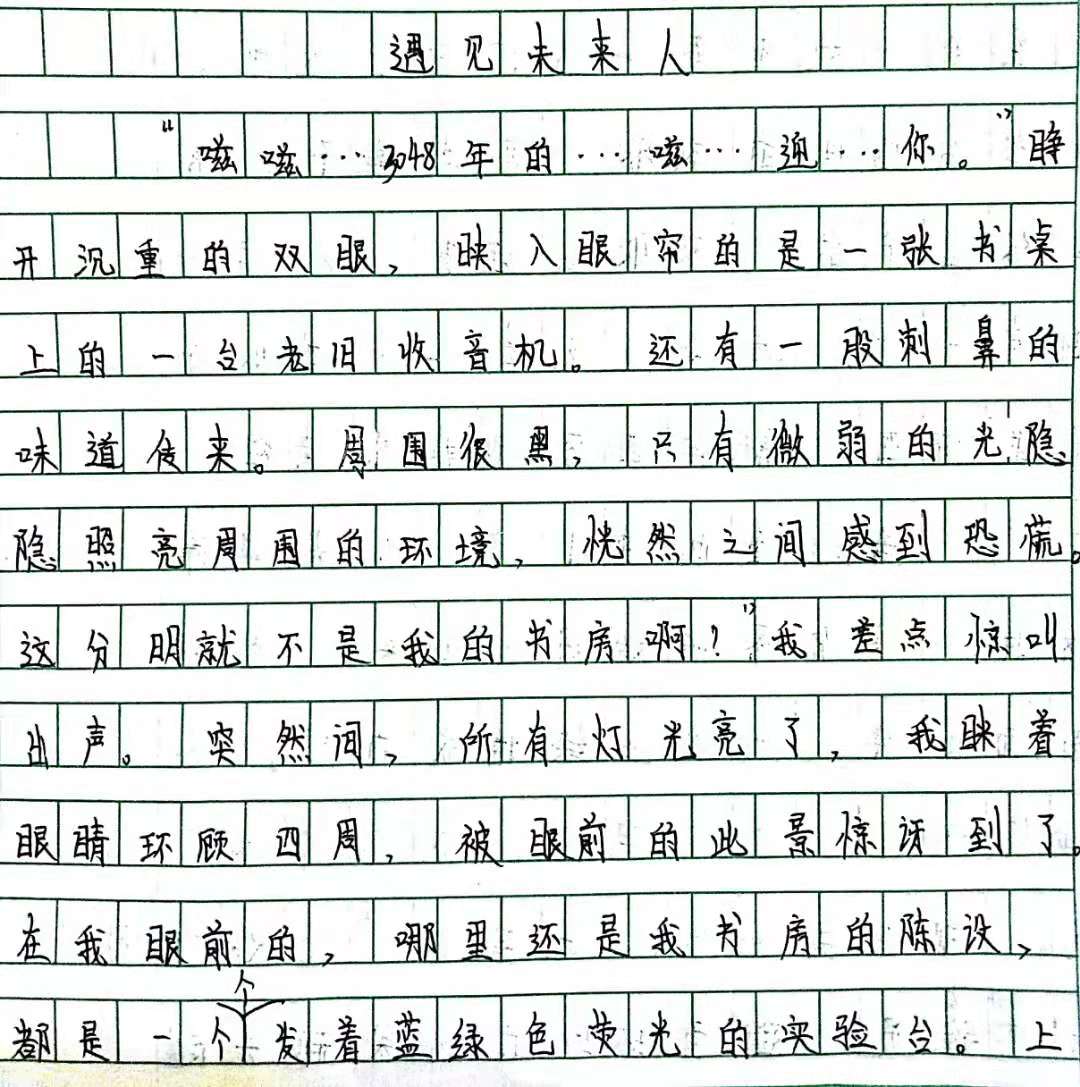 遇见未来人
“嗞嗞…3048年的…嗞…迎…你。”睁
开沉重的双眼,映入眼帘的是一张书桌
上的一台老旧收音机。还有一股刺鼻的
味道传来。周围很黑,只有微弱的光隐
隐照亮周围的环境,恍然之间感到恐慌。
这分明就不是我的书房啊!”我差点惊叫
出声。突然间,所有灯光亮了,我眯着
眼睛环顾四周,被眼前的此景惊讶到了。
在我眼前的,哪里还是我书房的陈设,
都是一个个发着蓝绿色荧光的实验台。上